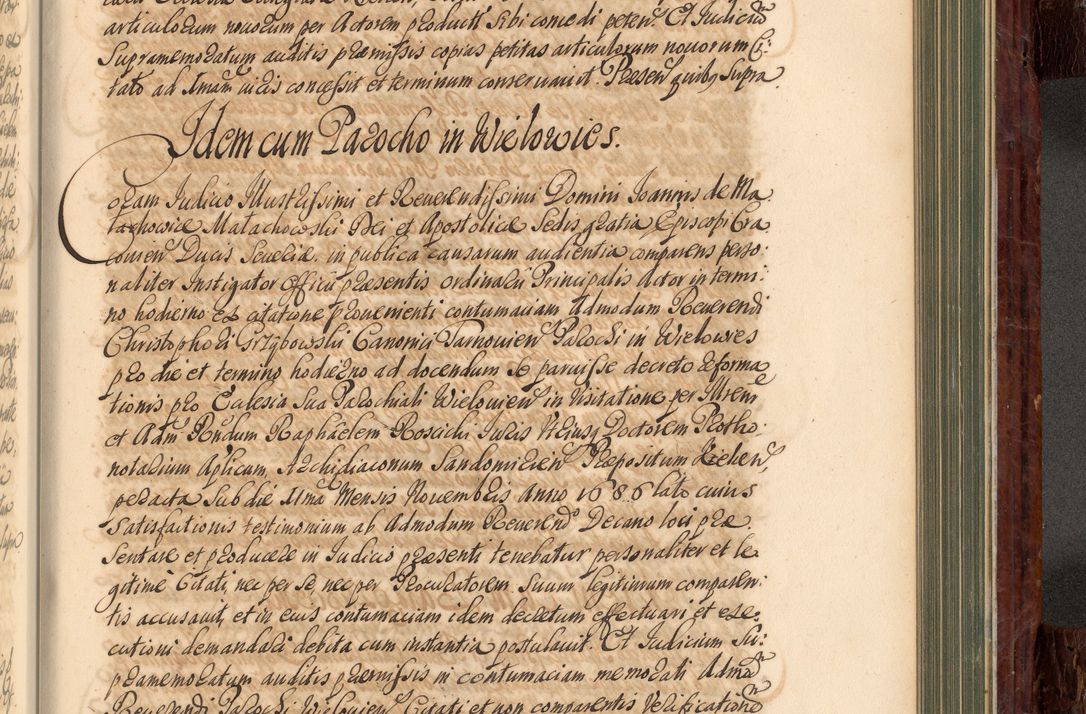 articulorum nouorum per Actorem product: sibi concedi peten: Et Iudiciũ
Supramemoratum auditis præmissis copias petitas articulorum nouorum Ci:
tato ad Imam iuris concessit et terminum conseruauit. Præsen: quibus supra.
Idem cum Parocho in Wielowies.
Coram Iudicio Illustrissimi et Reuerendissimi Domini Ioannis de Ma
łachowice Małachowski Dei et Apostolicæ Sedis gratia Episcopi Cra
couien: Ducis Seueriæ, in publica causarum audientia comparens perso:
naliter Instigator Officii præsentis ordinarii Principalis Actor in termi:
no hodierno ex citatione proueniẽti contumaciam Admodum Reuerendi
Christophori Grzybowski Canonici Tarnouien: Parochi in Wielowies
pro die et termino hodierno ad docendum se paruisse decreto reforma
tionis pro Eclesia sua Parochiali Wielouien: in Visitatione per Illrem
et Adm: Rñdum Raphaelem Roscicki Iuris Vtriusq Doctorem Protho:
notarium Aplicum, Archidiaconum Sandomirien: Præpositum Kielcen:
peracta sub die 11ma Mensis Nouembris Anno 1686 lato cuius
satisfactionis testimonium ab Admodum Reuerendo Decano loci præ
sentare et producere in Iudicio præsenti tenebatur personaliter et le
gitime Citati, nec per se, nec per Procuratorem suum legitimum comparen:
tis accusauit, et in eius contumaciam idem decretum effectuari et exe:
cutioni demandari debita cum instantia postulauit. Et Iudicium Su:
pramemoratum auditis præmissis in contumaciam memorati Admdũ
Reuerendi Parochi Wielouien: Citati et non comparentis Verificatione